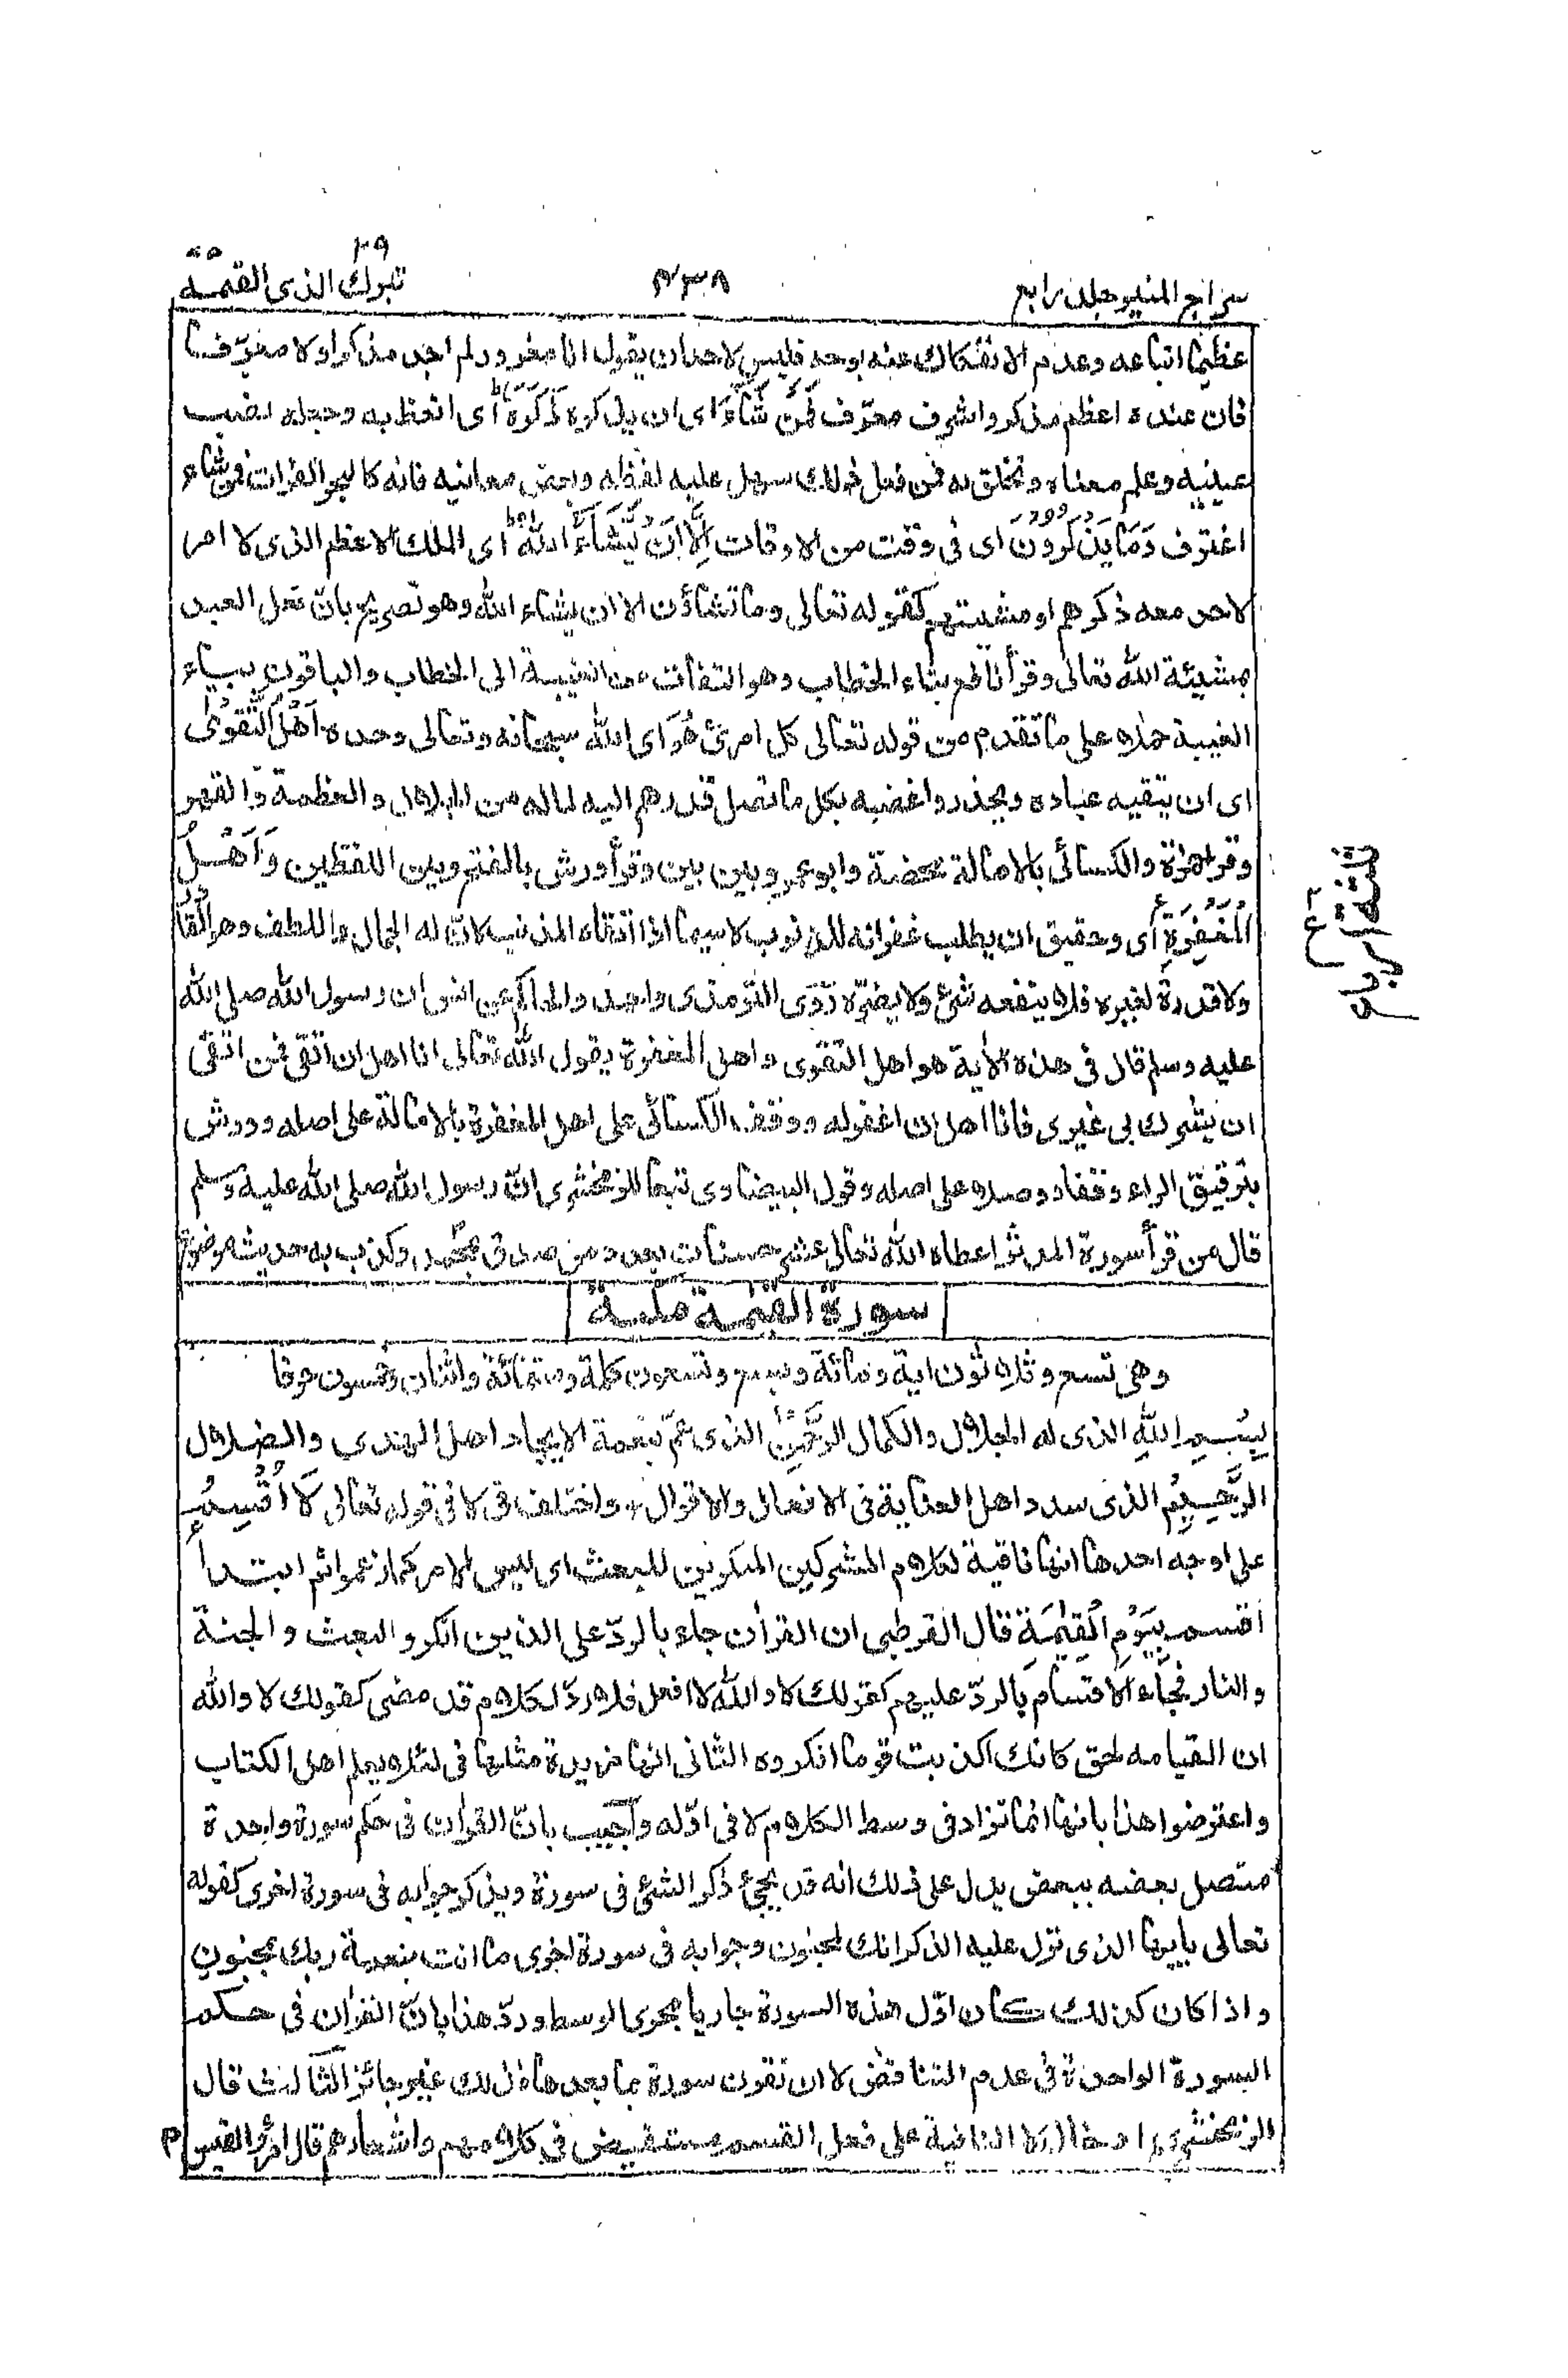 سراج المنير جلد رابع
٤٣٨
٢٩
تبرك الذى القيٰمة
عظيما اتباعه وعدم الانفكاك عنه بوجه فليس لاحد ان يقول انا مغرور لم اجد مذكرا ولا معرّفا
فان عنده اعظم مذكر واشرف معرّف فَمَنْ شَآءَ اى ان يذكره ذَكَرَهٗ اى اتعظ به وجعله نصب
عينيه وعلم معناه وتخلق به فمن فعل ذلك سهل عليه لفظه وبعض معانيه فانه كالبحر الفرات فمن شاء
اغترف وَمَا يَذْكُرُوْنَ اى فى وقت من الاوقات اِلَّا اَنْ يَّشَآءَ اللهُ اى الملك الاعظم الذى لا امر
لاحد معه ذكرهم او مشيتهم كقوله تعالى وما تشاؤن الا ان يشاء الله وهو تصريح بانّ فعل العبد
بمشيئة الله تعالى وقرأ نافع بتاء الخطاب وهو التفات من الغيبة الى الخطاب والباقون بياء
الغيبة حملا على ما تقدم من قوله تعالى كل امرئ هُوَ اى الله سبحانه وتعالى وحده اَهْلُ التَّقْوٰى
اى ان يتقيه عباده ويحذروا غضبه بكل ما تصل قدرهم اليه لما له من الجلال والعظمة والقهر
وقرا حمزة والكسائى بالامالة محضة وابو عمرو بين بين وقرأ ورش بالفتح وبين اللفظين وَاَهْلُ
الْمَغْفِرَةِ اى وحقيق ان يطلب غفرانه للذنوب لاسيما اذا اتقاه المذنب لانّ له الجمال واللطف وهو القادر
ولا قدرة لغيره فلا ينفعه شئ ولا يضرّه رَوَى الترمذى واحمد والحاكم عن انس ان رسول الله صلى الله
عليه وسلم قال فى هذه الاٰية هو اهل التقوى واهل المغفرة يقول الله تعالى انا اهل ان اتّقى فمن اتقى
ان يشرك بى غيرى فانا اهل ان اغفر له ووقف الكسائى على اهل المغفرة بالامالة على اصله وورش
بترقيق الراء وقفا ووصلا على اصله وقول البيضاوى تبعا للزمخشرى انّ رسول الله صلى الله عليه وسلم
قال من قرأ سورة المدثر اعطاه الله تعالى عشر حسنات بعدد من صدق بمحمد وكذب به حديث موضوع
سورة القيٰمة مكية
وهى تسع وثلاثون اية ومائة وسبع وتسعون كلمة وستمائة واثنان وخمسون حرفا
بِسْمِ اللهِ الذى له الجلال والكمال الرَّحْمٰنِ الذى عمّ بنعمة الايجاد اهل الهدى والضلال
الرَّحِيْمِ الذى سدد اهل العناية فى الافعال والاقوال واختلف فى لا فى قوله تعالى لَا اُقْسِمُ
على اوجه احدها انها نافية لكلام المشركين المنكرين للبعث اى ليس الامر كما زعموا ثم ابتدأ
اقسم بِيَوْمِ الْقِيٰمَةِ قال القرطبى ان القراٰن جاء بالردّ على الذين انكروا البعث والجنة
والنار فجاء الاقسام بالردّ عليهم كقولك لا والله لا افعل فلا ردّ لكلام قد مضى كقولك لا والله
ان القيامه لحق كانك اكذبت قوما انكروه الثانى انها مزيدة مثلها فى لئلا يعلم اهل الكتاب
واعترضوا هذا بانها انما تزاد فى وسط الكلام لا فى اوّله وَاُجيب بانّ القراٰن فى حكم سورة واحدة
متصل بعضه ببعض يدل على ذلك انه قد يجئ ذكر الشئ فى سورة ويذكر جوابه فى سورة اخرى كقوله
تعالى يايها الذى نزل عليه الذكر انك لمجنون وجوابه فى سورة اخرى ما انت بنعمة ربك بمجنون
واذا كان كذلك كان اوّل هذه السورة جاريا مجرى الوسط وردّ هذا بانّ القراٰن فى حكم
السورة الواحدة فى عدم التناقض لا ان تقرن سورة بما بعدها فذلك غير جائز الثالث قال
الزمخشرى ادخال لا النافية على فعل القسم مستفيض فى كلامهم واشعارهم قال امرؤ القيس